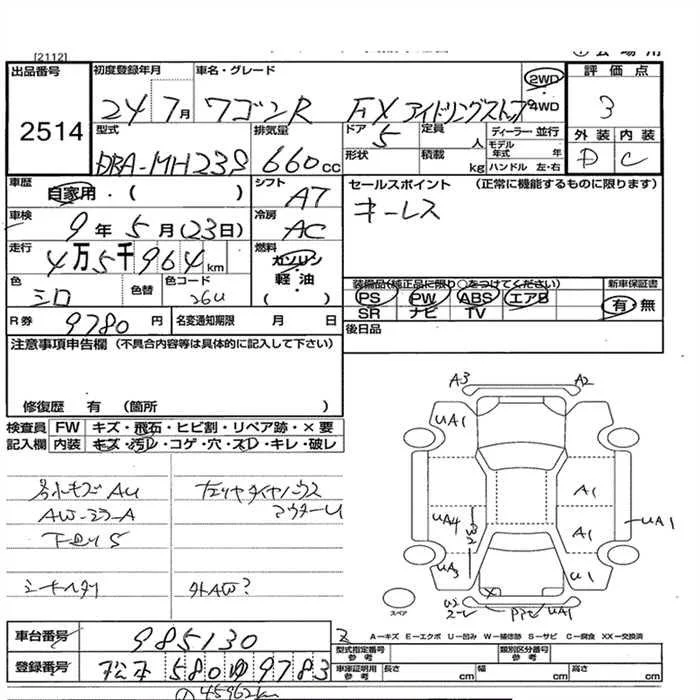 [2112]
出品番号 初度登録年月 車名・グレード 2WD 評価点
2514 24 7月 ワゴンR FX アイドリングストップ 4WD 3
型式 排気量 ドア 定員 ディーラー 並行 外装 内装
DBA-MH23S 660cc 5 人 モデル年式 年 D C
形状 積載 kg ハンドル 左・右
車歴 自家用・( ) シフト AT セールスポイント (正常に機能するものに限ります)
車検 9年5月(23日) 冷房 AC キーレス
走行 4万5千964km 燃料 ガソリン
軽油
( )
色 シロ 色替 色コード 26U 装備品(純正品に限り○をつけてください) 新車保証書
PS PW ABS エアB 有 無
SR ナビ TV
R券 9780円 名変通知期限 月 日 後日品
注意事項申告欄 (不具合内容等は具体的に記入して下さい)
修復歴 有 (箇所 )
検査員 FW キズ・飛石・ヒビ割・リペア跡・×要
記入欄 内装 キズ・汚レ・コゲ・穴・スレ・キレ・破レ
A3 A2
UA1
A1
UA4 A1 UA1
UA3 U1
UA1
AU
A
S
スペア
A-キズ E-エクボ U-凹み W-補修跡 S-サビ C-腐食 XX-交換済
車台番号 985130 型式指定番号 参考 類別区分番号 参考
登録番号 松本 580 ゆ 9783 車庫証明用 参考 長さ cm 幅 cm 高さ cm
① 45962km